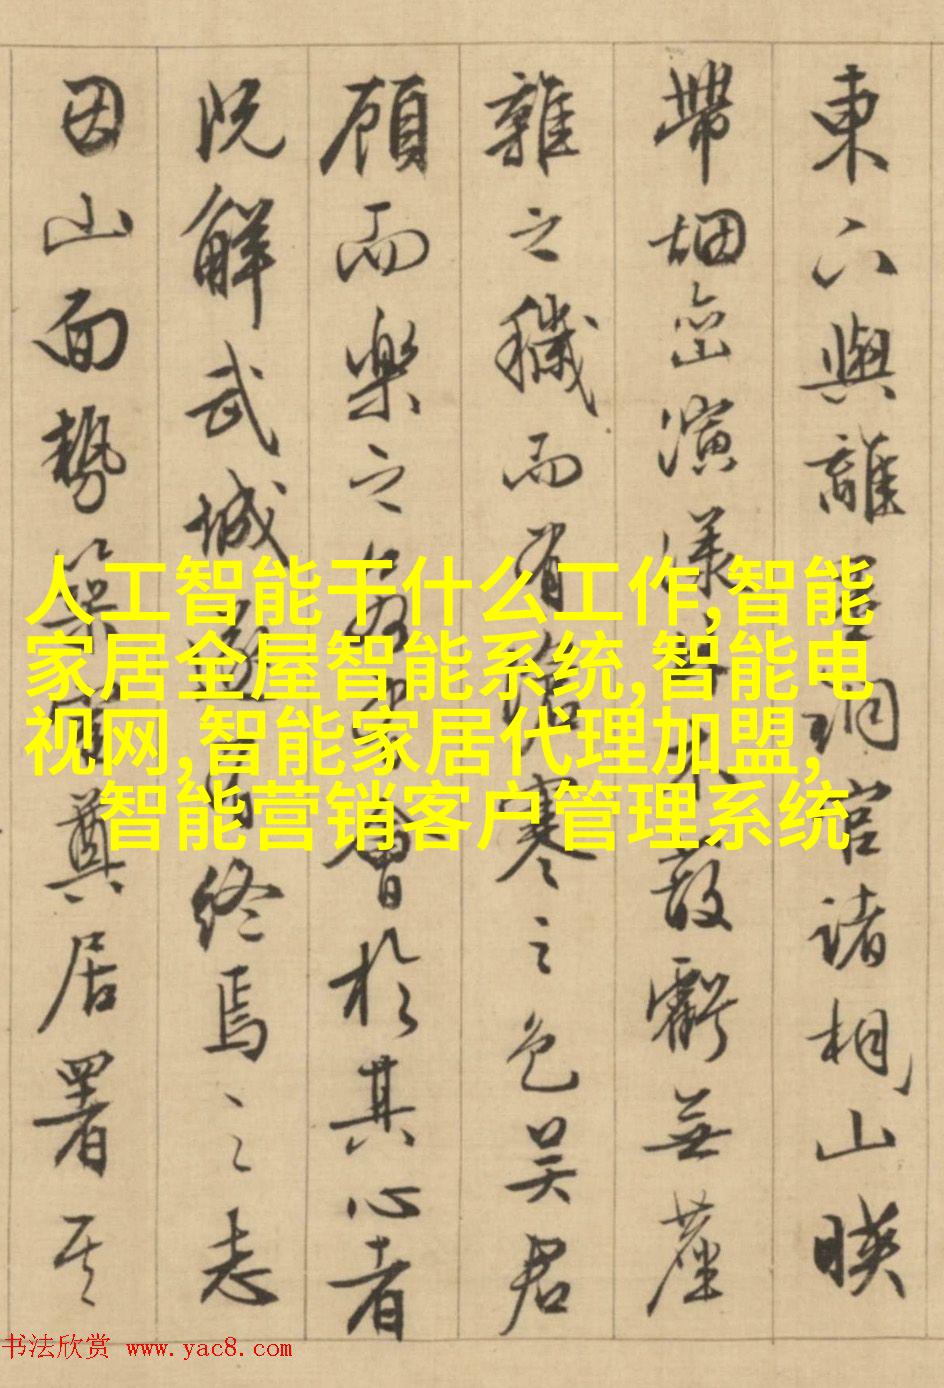 東六與離墨
珂宮諸相山暎
帶烟巒演漾
水
散霩無塵
雜之穢而有
寒之色吴君
顧而樂之為
會於其心者
既解武城
終焉之志
因山面勢築
奠居署其
人工智能干什么工作,智能
家居全屋智能系统,智能电
视网,智能家居代理加盟,
智能营销客户管理系统
书法欣赏 www.yac8.com